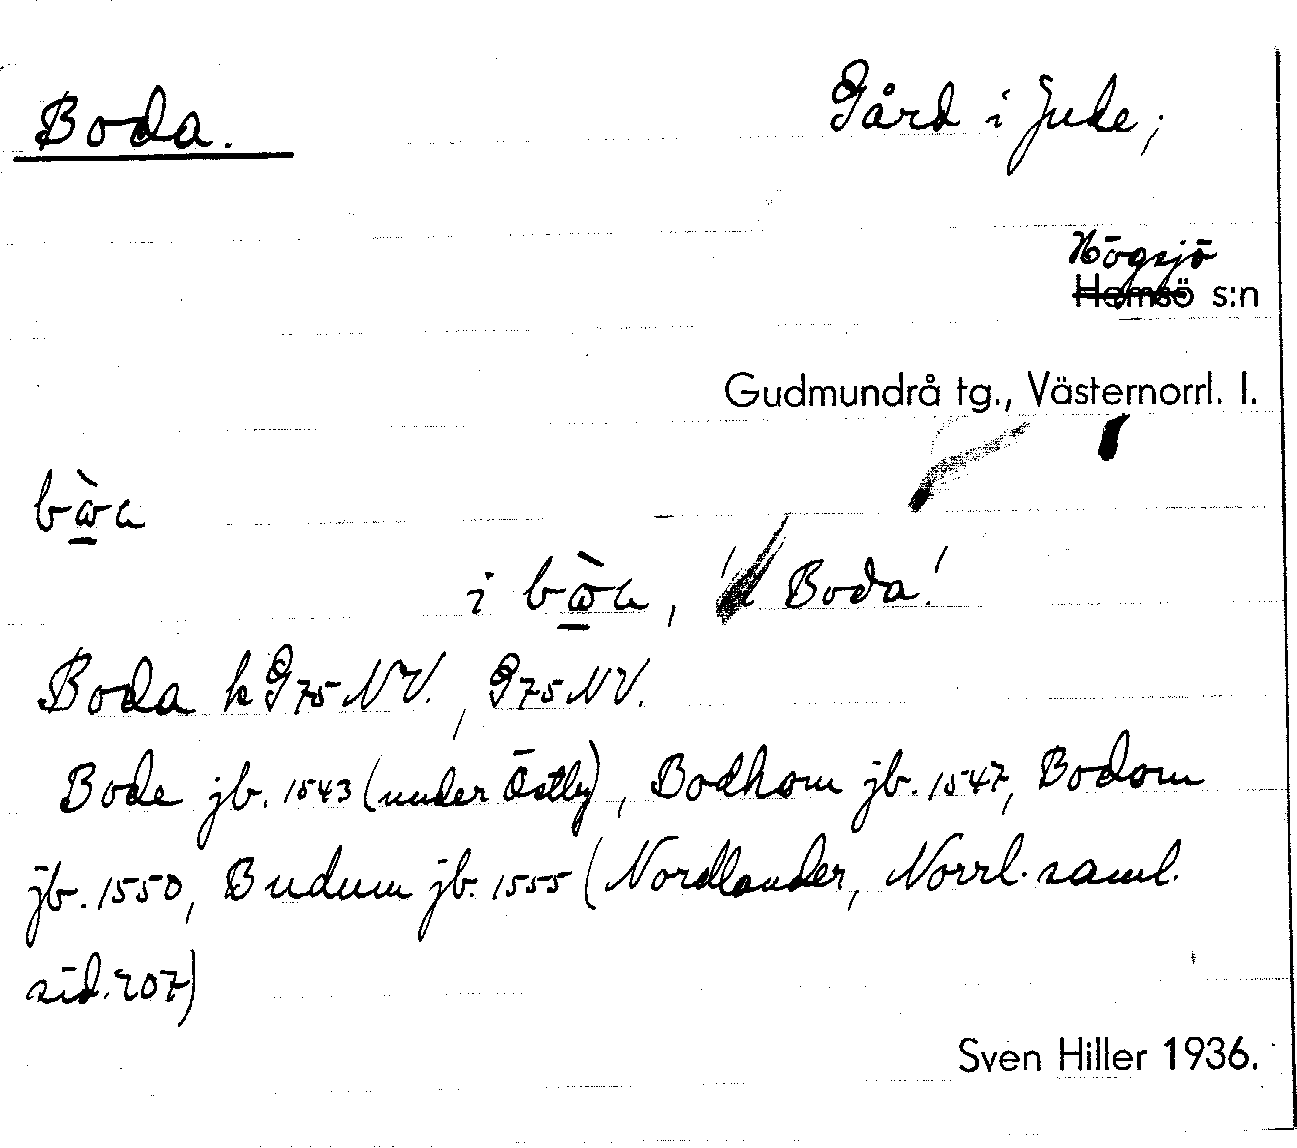 Boda. Gård i Jude;
Högsjö
Hemsö s:n
Gudmundrå tg., Västernorrl. l.
bɷ̀a
i bɷ̀a, Boda!
Boda k G75NV., G75NV.
Bode jb. 1543 (under Östby), Bodhom jb. 1547, Bodom
jb. 1550, Budum jb. 1555 (Nordlander, Norrl. saml.
sid. 207)
Sven Hiller 1936.